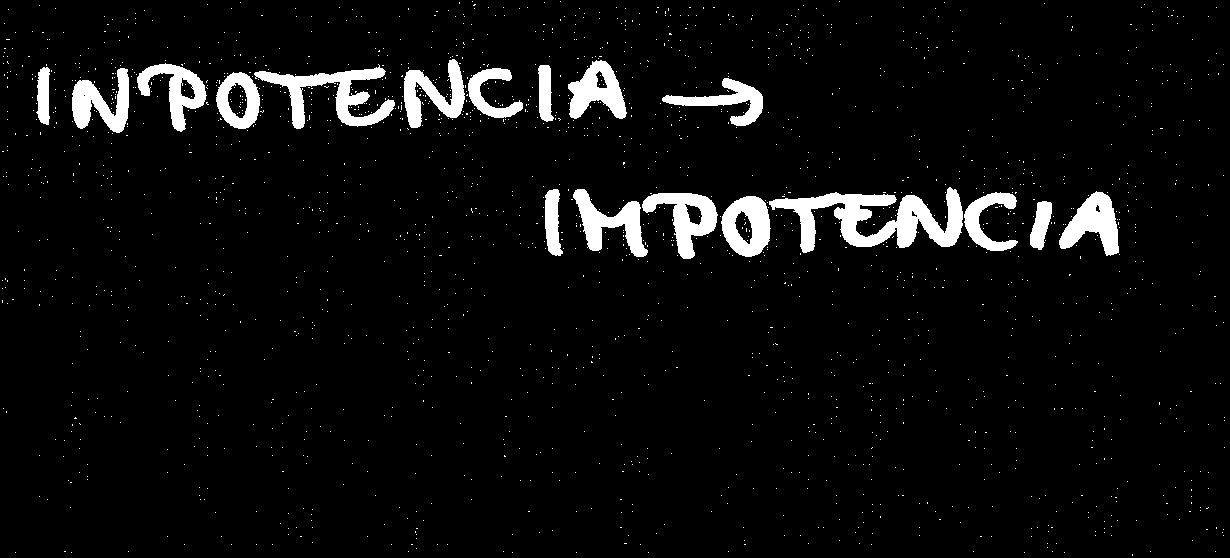 INPOTENCIA →
IMPOTENCIA